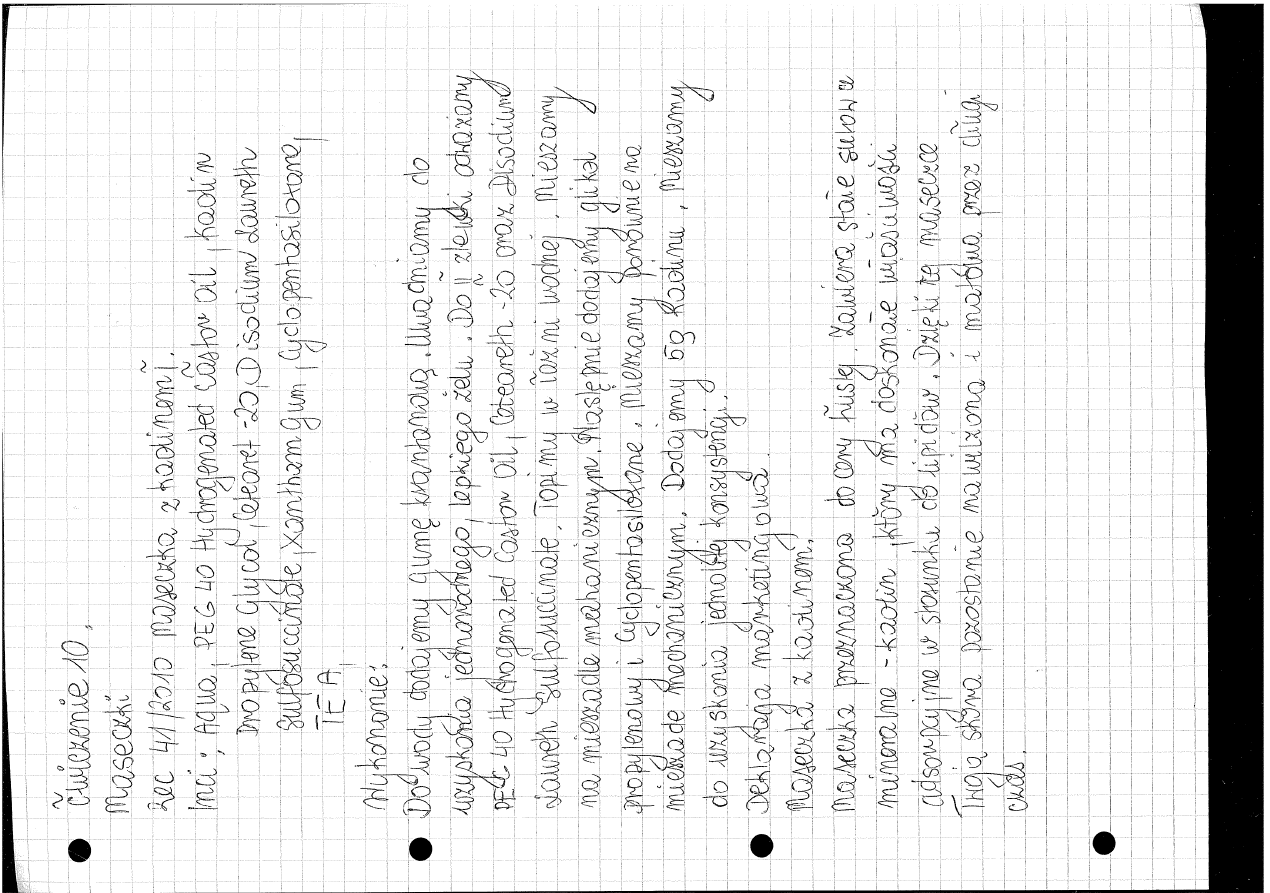 Ćwiczenie 10.
Maseczki
Rec 41/2010 Maseczka z kaolinem.
Inci: Aqua, PEG 40 Hydrogenated Castor Oil, Kaolin
Propylene Glycol, Cetearet-20, Disodium Laureth
Sulfosuccinate, Xantham gum, Cyclopentasiloxane,
TEA
Wykonanie:
Do wody dodajemy gumę ksantanową. Uwadniamy do
uzyskania jednorodnego, lepkiego żelu. Do II zlewki odważamy
PEG 40 Hydrogenated Castor Oil, Ceteareth-20 oraz Disodium
Laureth Sulfosuccinate. Topimy w łaźni wodnej. Mieszamy
na mieszadle mechanicznym. Następnie dodajemy glikol
propylenowy i Cyclopentasiloxane. Mieszamy ponownie na
mieszadle mechanicznym. Dodajemy 5g Kaolinu. Mieszamy
do uzyskania jednolitej konsystencji.
Deklaracja marketingowa.
Maseczka z kaolinem.
Maseczka przeznaczona do cery tłustej. Zawiera stałe surowce
mineralne - kaolin, który ma doskonałe właściwości
adsorpcyjne w stosunku do lipidów. Dzięki tej maseczce
Twoja skóra pozostanie nawilżona i matowa przez długi
czas.